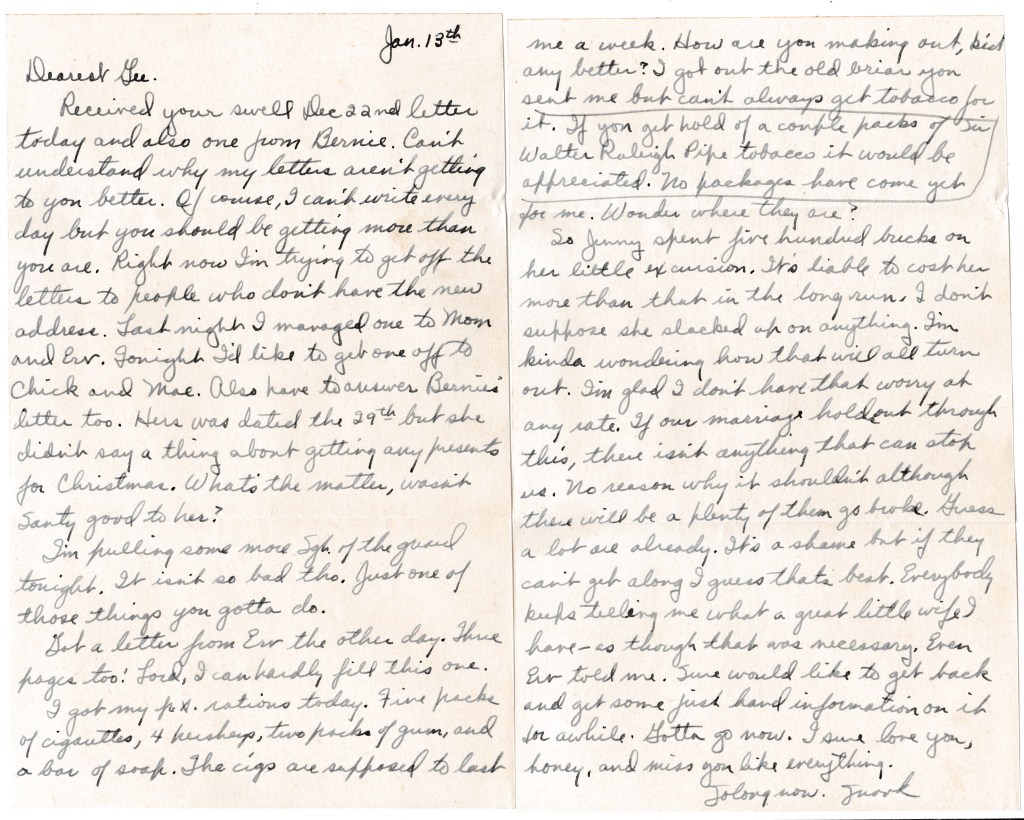 Jan. 13th
Dearest Gee.
Received your swell Dec 22nd letter
today and also one from Bernie. Can't
understand why my letters aren't getting
to you better. Of course, I can't write every
day but you should be getting more than
you are. Right now I'm trying to get off the
letters to people who don't have the new
address. Last night I managed one to Mom
and Erv. Tonight I'd like to get one off to
Chick and Mae. Also have to answer Bernie's
letter too. Hers was dated the 29th but she
didn't say a thing about getting any presents
for Christmas. What's the matter, wasn't
Santy good to her?
I'm pulling some more Sgt. of the guard
tonight. It isn't so bad tho. Just one of
those things you gotta do.
Got a letter from Erv the other day. Three
pages too! Lord, I can hardly fill this one.
I got my p.x. rations today. Five packs
of cigarettes, 4 hersheys, two packs of gum, and
a bar of soap. The cigs are supposed to last
me a week. How are you making out, kid
any better? I got out the old briar you
sent me but can't always get tobacco for
it. If you get hold of a couple packs of Sir
Walter Raleigh Pipe tobacco it would be
appreciated. No packages have come yet
for me. Wonder where they are?
So Jenny spent five hundred bucks on
her little excursion. It's liable to cost her
more than that in the long run. I don't
suppose she slacked up on anything. I'm
kinda wondering how that will all turn
out. I'm glad I don't have that worry at
any rate. If our marriage holds out through
this, there isn't anything that can stop
us. No reason why it shouldn't although
there will be a plenty of them go broke. Guess
a lot are already. It's a shame but if they
can't get along I guess that's best. Everybody
keeps telling me what a great little wife I
have - as though that was necessary. Even
Erv told me. Sure would like to get back
and get some just hand information on it
for awhile. Gotta go now. I sure love you,
honey, and miss you like everything.
So long now.